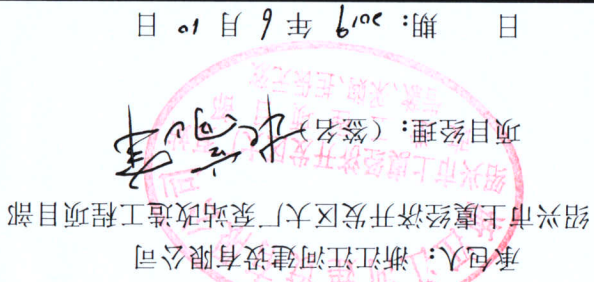 承包人：浙江江河建设有限公司
绍兴市上虞经济开发区大厂泵站改造工程项目部
项目经理：（签名）
日 期：2019 年 6 月 10 日